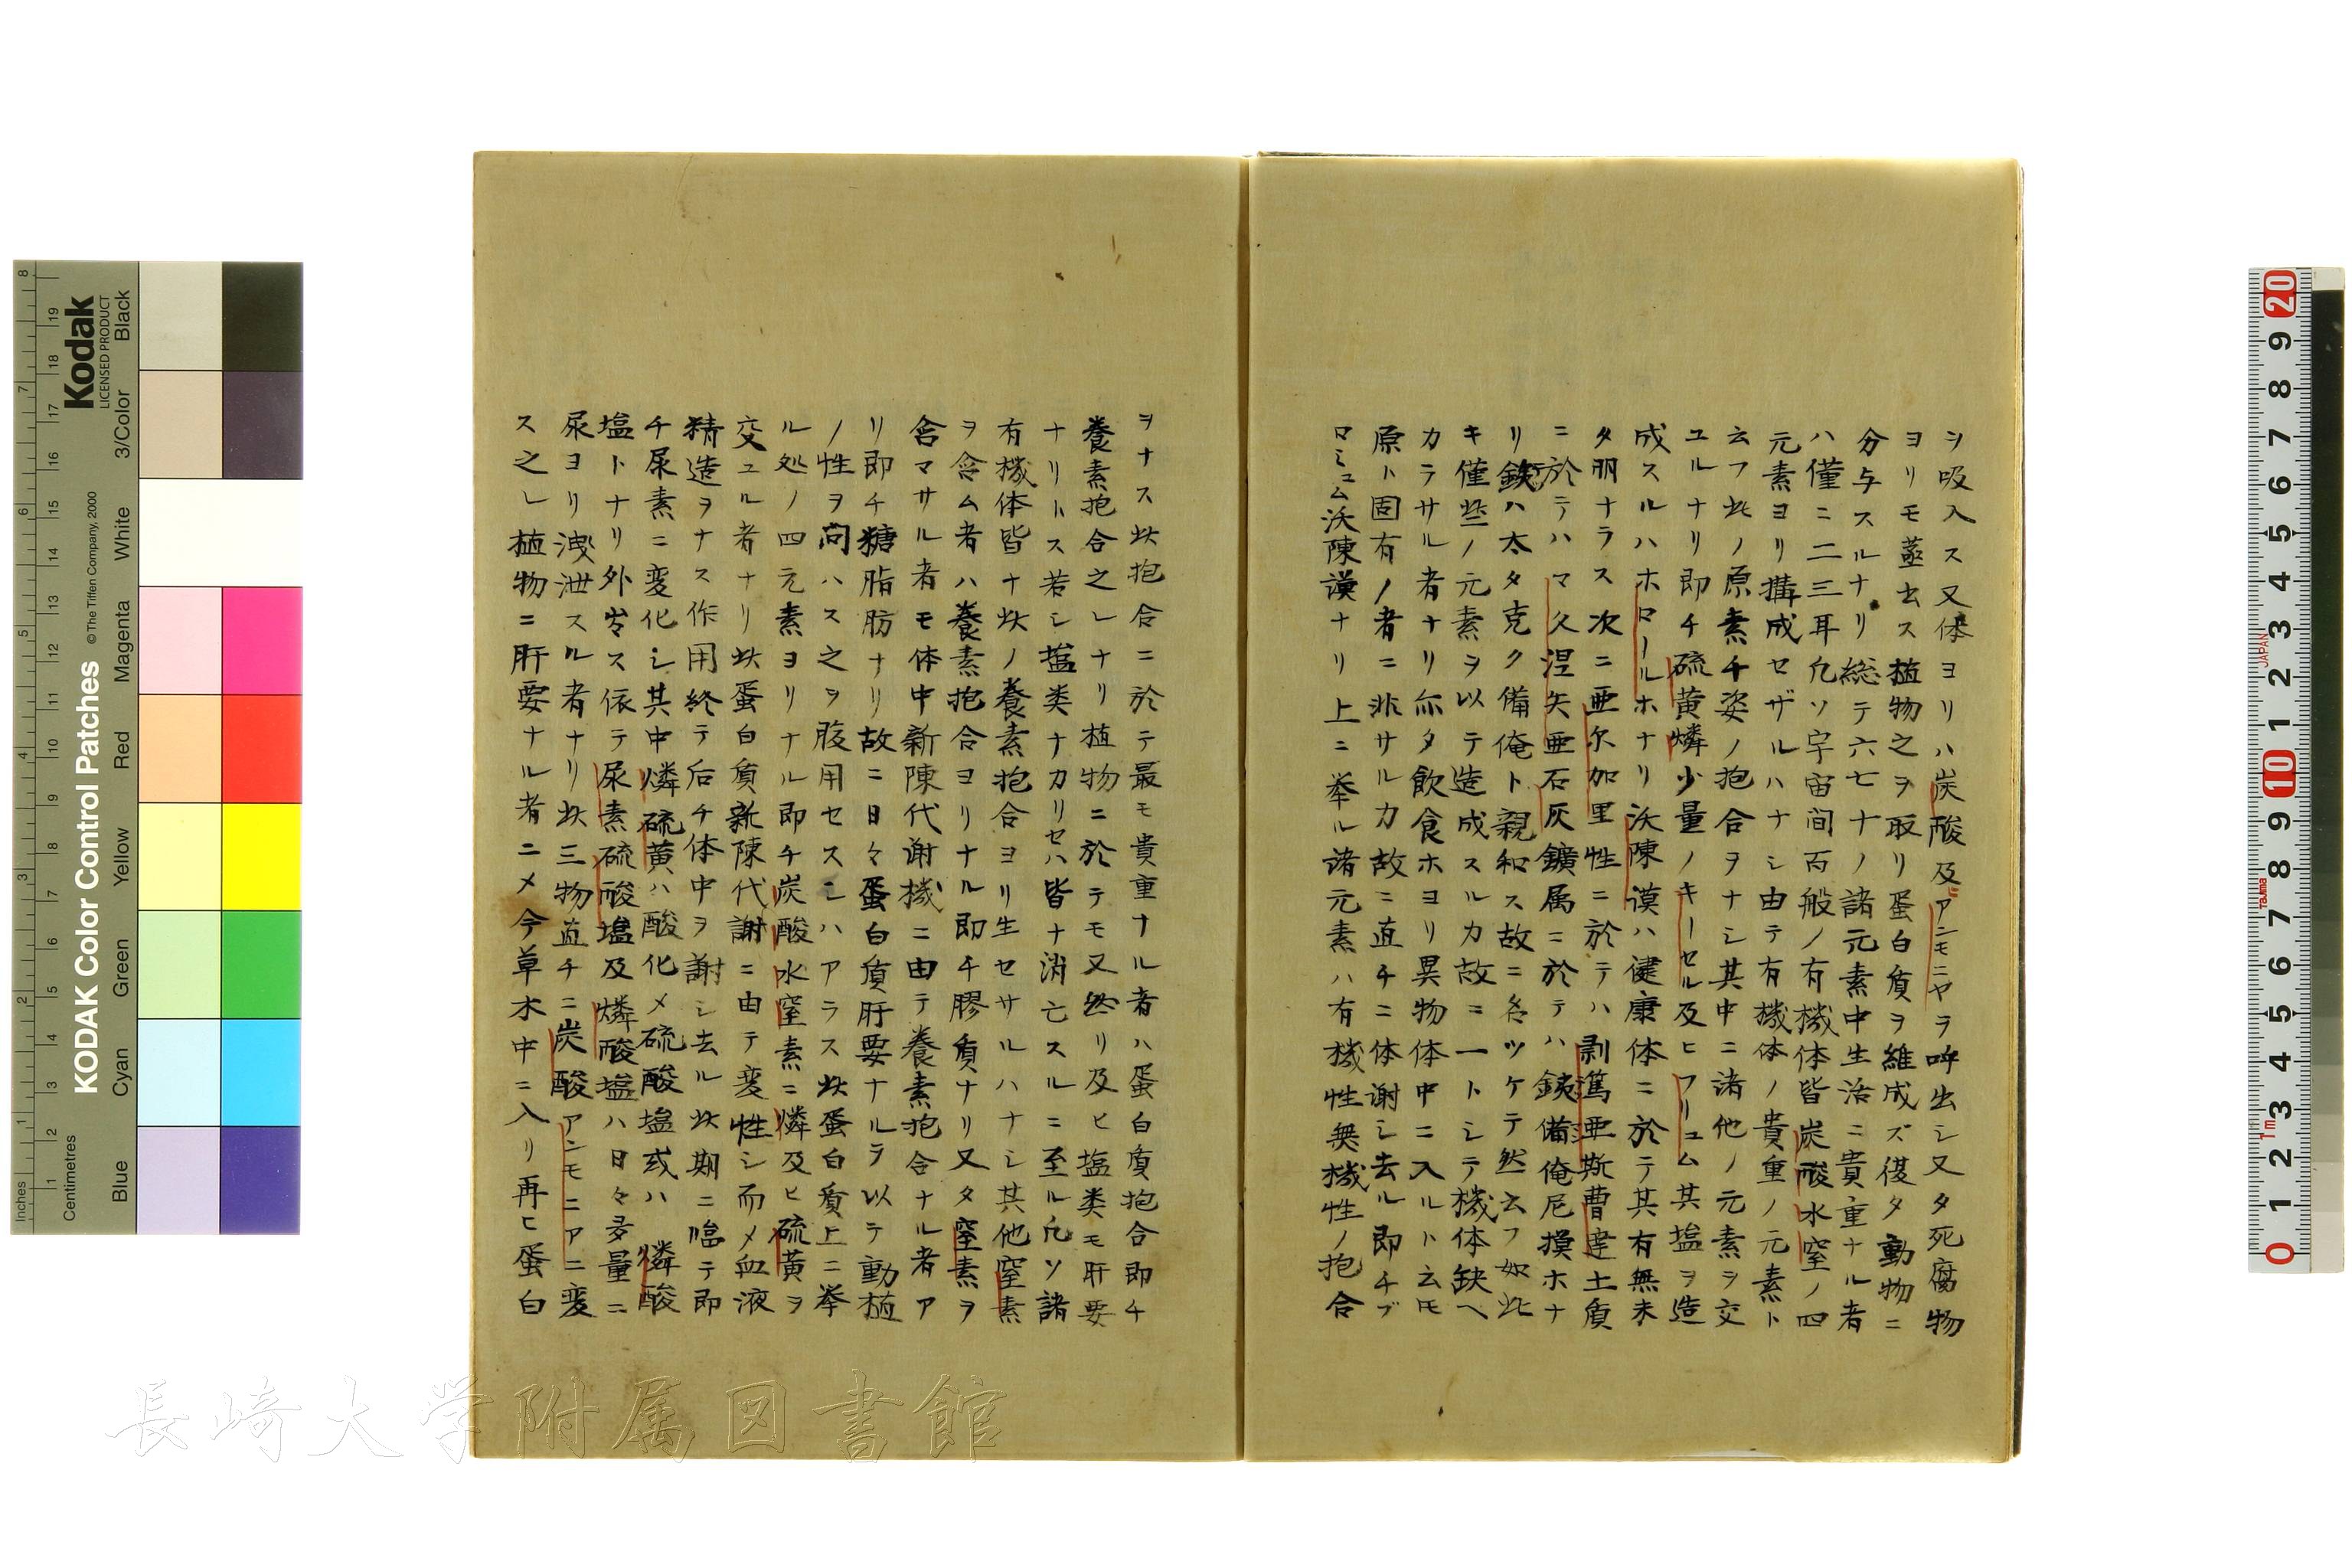 ヲ吸入ス又体ヨリハ炭酸及ヒアンモニヤヲ呼出シ又タ死腐物
ヨリモ蒸出ス植物之ヲ取リ蛋白質ヲ維成ズ復タ動物ニ
分与スルナリ総テ六七十ノ諸元素中生活ニ貴重ナル者
ハ僅ニ二三耳凡ソ宇宙間百般ノ有機体皆炭酸水窒ノ四
元素ヨリ搆成セザルハナシ由テ有機体ノ貴重ノ元素ト
云フ此ノ原素千姿ノ抱合ヲナシ其中ニ諸他ノ元素ヲ交
ユルナリ即チ硫黄燐少量ノキーセル及ヒフリュム其塩ヲ造
成スルハホロールホナリ沃陳謨ハ健康体ニ於テ其有無未
タ明ナラス次ニ亜尓加里性ニ於テハ剥篤亜斯曹達土質
ニ於テハマ久涅矢亜石灰鑛属ニ於テハ鉄備俺尼摸ホナ
リ鉄ハ太タ克ク備俺ト親和ス故ニ名ツケテ然云フ如此
キ僅些ノ元素ヲ以テ造成スルカ故ニ一トシテ機体缺ヘ
カラサル者ナリ亦タ飲食ホヨリ異物体中ニ入ルト云モ
原ト固有ノ者ニ非サルカ故ニ直チニ体謝シ去ル即チブ
ロミュム沃陳謨ナリ上ニ挙ル諸元素ハ有機性無機性ノ抱合
ヲナス此抱合ニ於テ最モ貴重ナル者ハ蛋白質抱合即チ
養素抱合之レナリ植物ニ於テモ又然リ及ヒ塩类モ肝要
ナリトス若シ塩类ナカリセハ皆ナ消亡スルニ至ル凡ソ諸
有機体皆ナ此ノ養素抱合ヨリ生セサルハナシ其他窒素
ヲ含ム者ハ養素抱合ヨリナル即チ膠質ナリ又タ窒素ヲ
含マサル者モ体中新陳代谢機ニ由テ養素抱合ナル者ア
リ即チ糖脂肪ナリ故ニ日々蛋白質肝要ナルヲ以テ動植
ノ性ヲ問ハス之ヲ服用セスンハアラス此蛋白質上ニ挙
ル処ノ四元素ヨリナル即チ炭酸水窒素ニ燐及ヒ硫黄ヲ
交ユル者ナリ此蛋白質新陳代謝ニ由テ変性シ而メ血液
精造ヲナス作用終テ后チ体中ヲ謝シ去ル此期ニ臨テ即
チ尿素ニ変化シ其中燐硫黄ハ酸化メ硫酸塩或ハ燐酸
塩トナリ外出ス依テ尿素硫酸塩及燐酸塩ハ日々多量ニ
尿ヨリ洩泄スル者ナリ此三物直チニ炭酸アンモニアニ変
ス之レ植物ニ肝要ナル者ニメ今草木中ニ入リ再ヒ蛋白
長崎大学附属図書館
Kodak
LICENSED PRODUCT
KODAK Color Control Patches
© The Tiffen Company, 2000
Inches
Centimetres
Blue Cyan Green Yellow Red Magenta White 3/Color Black
JAPAN
Tajima